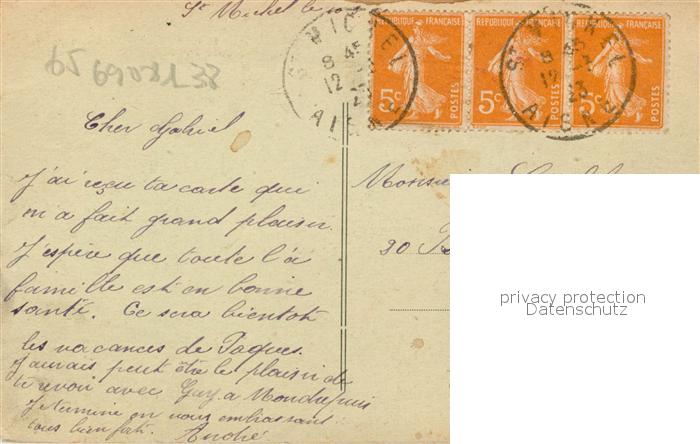 St Michel le
REPUBLIQUE FRANÇAISE
REPUBLIQUE FRANÇAISE
REPUBLIQUE FRANÇAISE
5c POSTES
5c POSTES
5c POSTES
ST MICHEL
8 45
12
AISNE
ST MICHEL
8 45
12 - 3
23
AISNE
Cher Gabriel
J'ai reçu ta carte qui
m'a fait grand plaisir.
J'espère que toute l'a
famille est en bonne
santé. Ce sera bientôt
les vacances de Paques.
J'aurais peut être le plaisir de
te revoir avec Guy a Mondrepuis
Je termine en vous embrassant
tous bien fort. André
Monsieur
30
privacy protection
Datenschutz